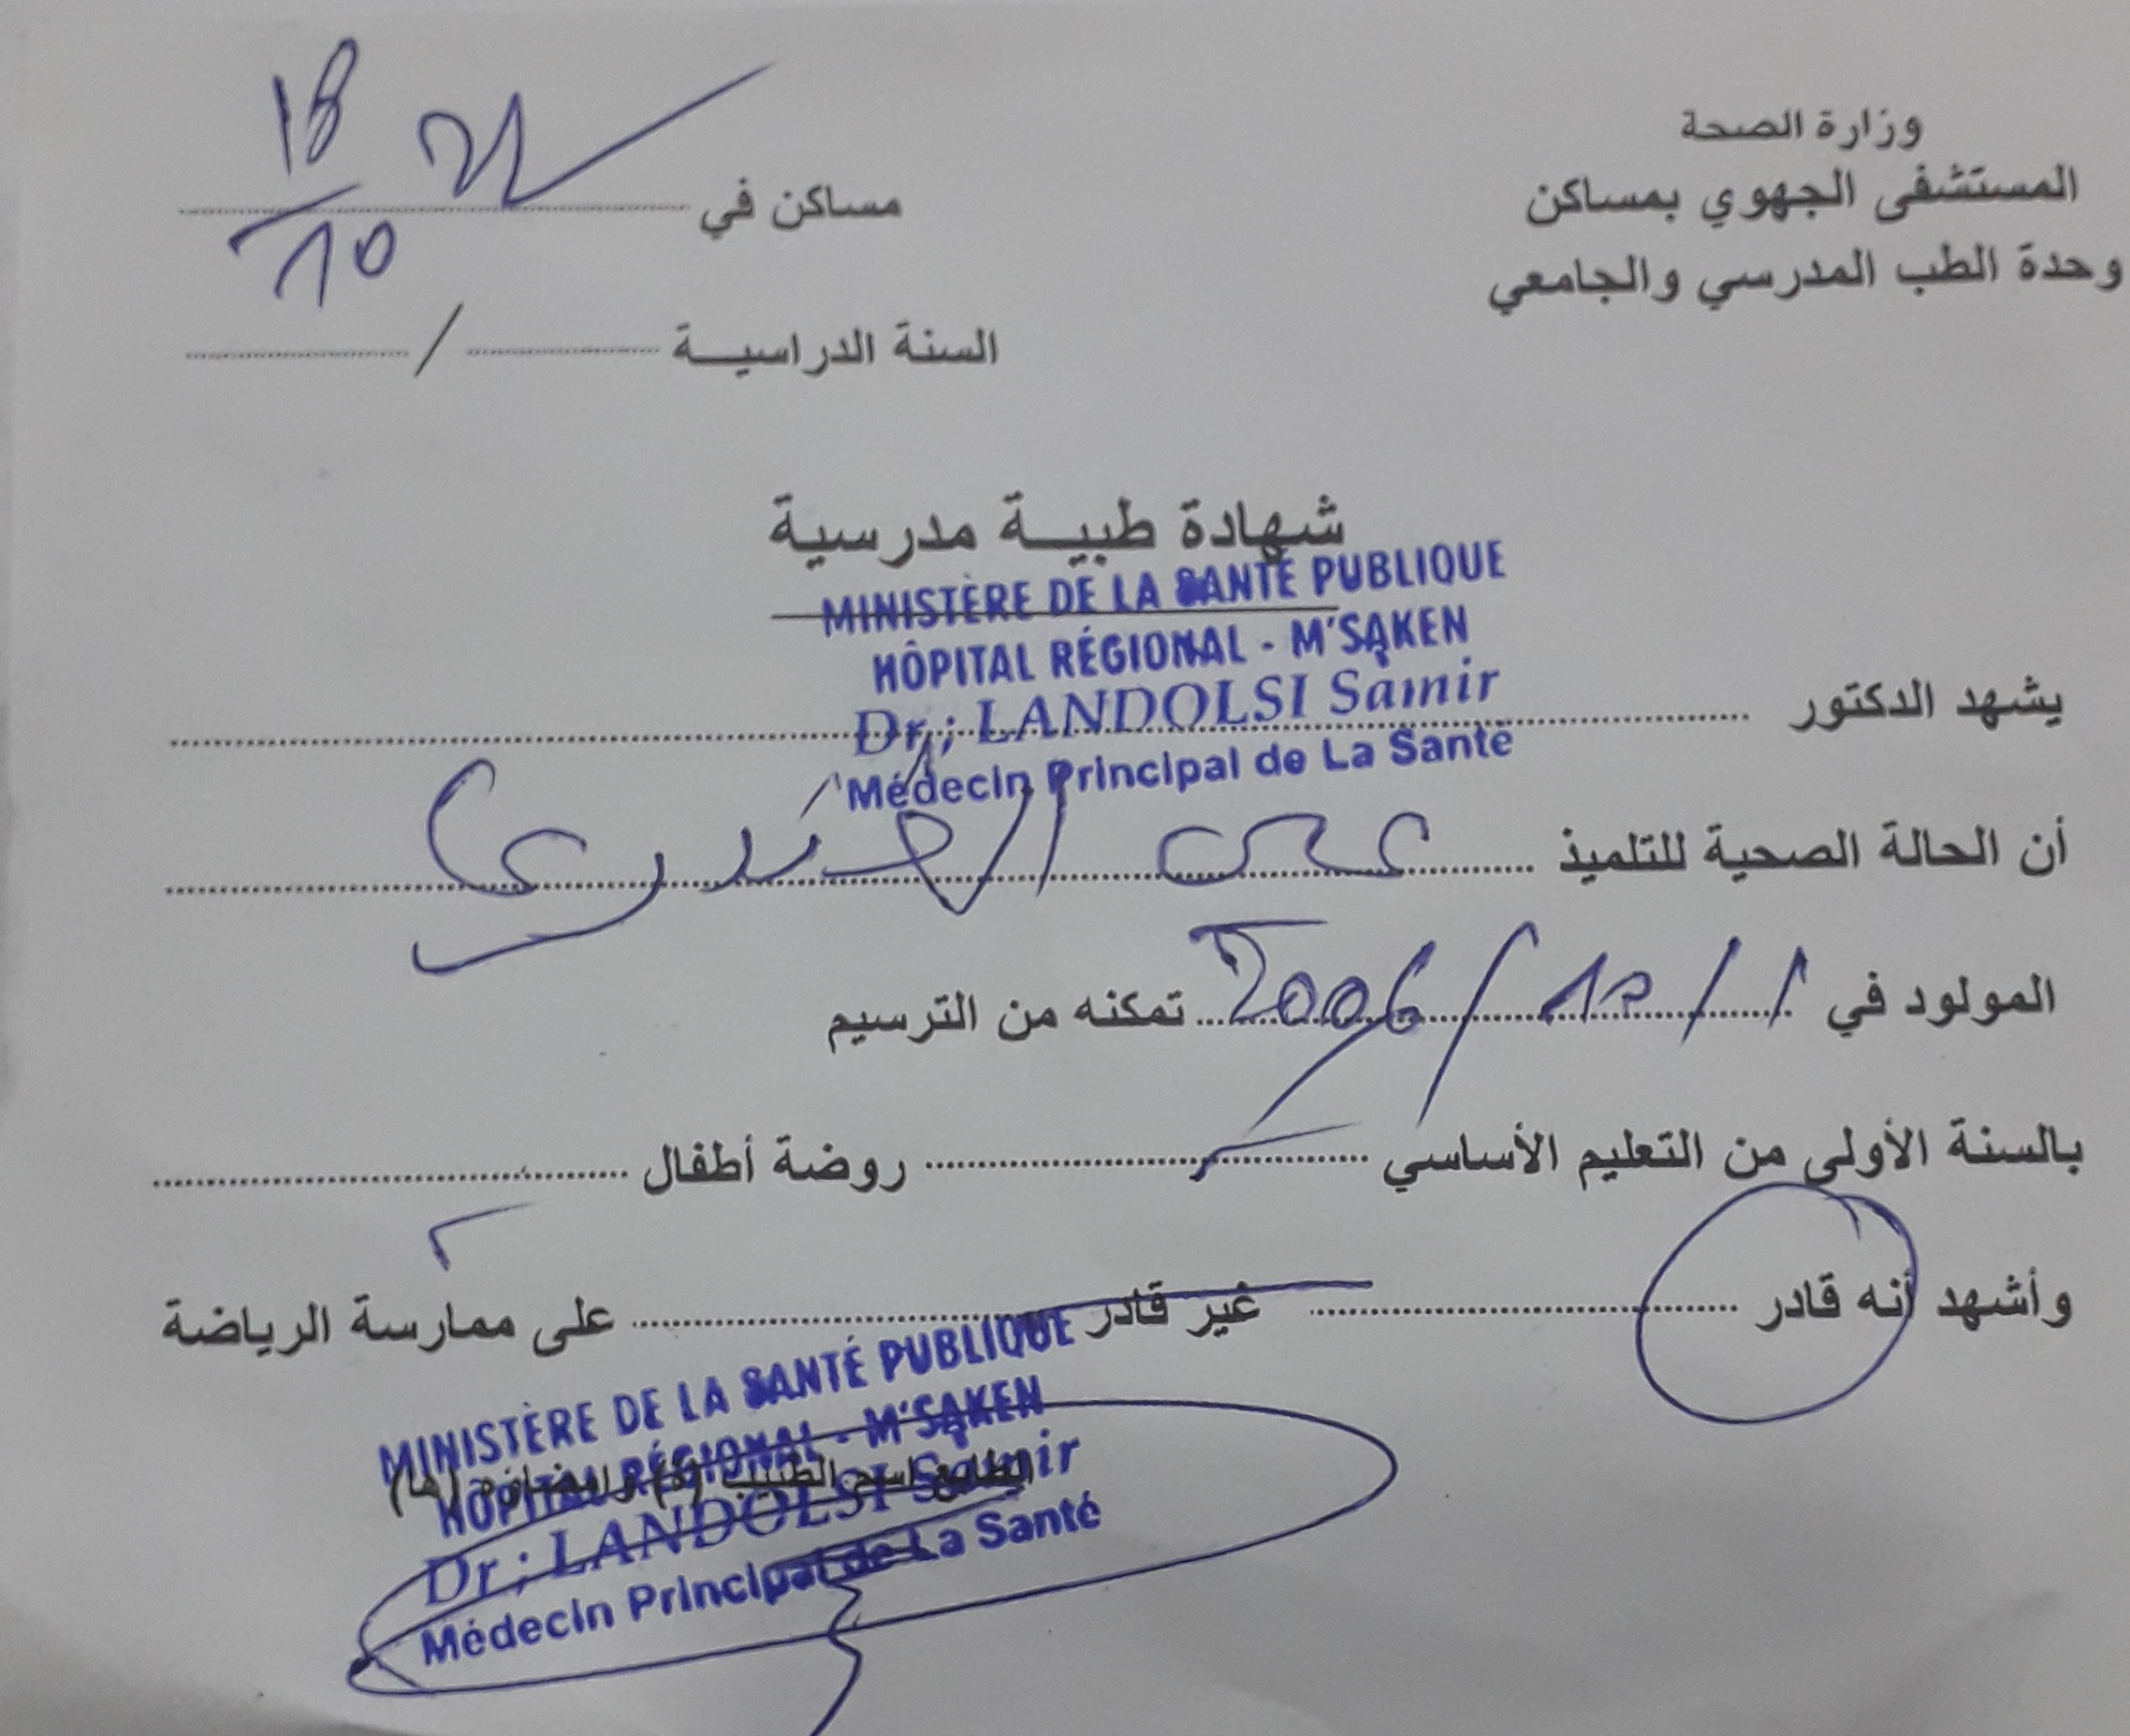 وزارة الصحة
المستشفى الجهوي بمساكن
وحدة الطب المدرسي والجامعي
مساكن في 18/10 22
السنة الدراسيـــة ........ / ........
شهادة طبيـــة مدرسية
MINISTÈRE DE LA SANTÉ PUBLIQUE
HÔPITAL RÉGIONAL - M'SAKEN
Dr.; LANDOLSI Samir
Médecin Principal de La Santé
يشهد الدكتور
أن الحالة الصحية للتلميذ
المولود في 1 / 12 / 2006 تمكنه من الترسيم
بالسنة الأولى من التعليم الأساسي ........ روضة أطفال ........
وأشهد أنه قادر ........ غير قادر ........ على ممارسة الرياضة
MINISTÈRE DE LA SANTÉ PUBLIQUE
HÔPITAL RÉGIONAL - M'SAKEN
Dr.; LANDOLSI Samir
Médecin Principal de La Santé